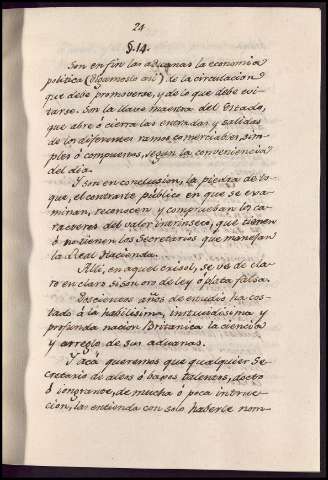 24
§. 14.
Son en fin las aduanas la economia
politica (digamoslo asi) de la circulacion
que debe promoverse, y de lo que debe evi-
tarse. Son la llave maestra del Estado,
que abre ó cierra las entradas y salidas
de los diferentes ramos comerciables, sim-
ples ó compuestos, segun la conveniencia
del dia.
Y son en conclusion, la piedra de to-
que, el contraste público en que se exa-
minan, reconocen y comprueban los ca-
racteres del valor intrinseco, que tienen
ó no tienen los Secretarios que manejan
la Real Hacienda.
Alli, en aquel crisol, se ve de cla-
ro en claro si son oro de ley ó plata falsa.
Doscientos años de estudio ha cos-
tado á la habilisima, industriosisima y
profunda nacion Britanica la ciencia
y arreglo de sus aduanas.
Y acá queremos que qualquier Se-
cretario de altos ó bajos talentos, docto
ó ignorante, de mucha ó poca instruc-
cion, las entienda con solo haberle nom-